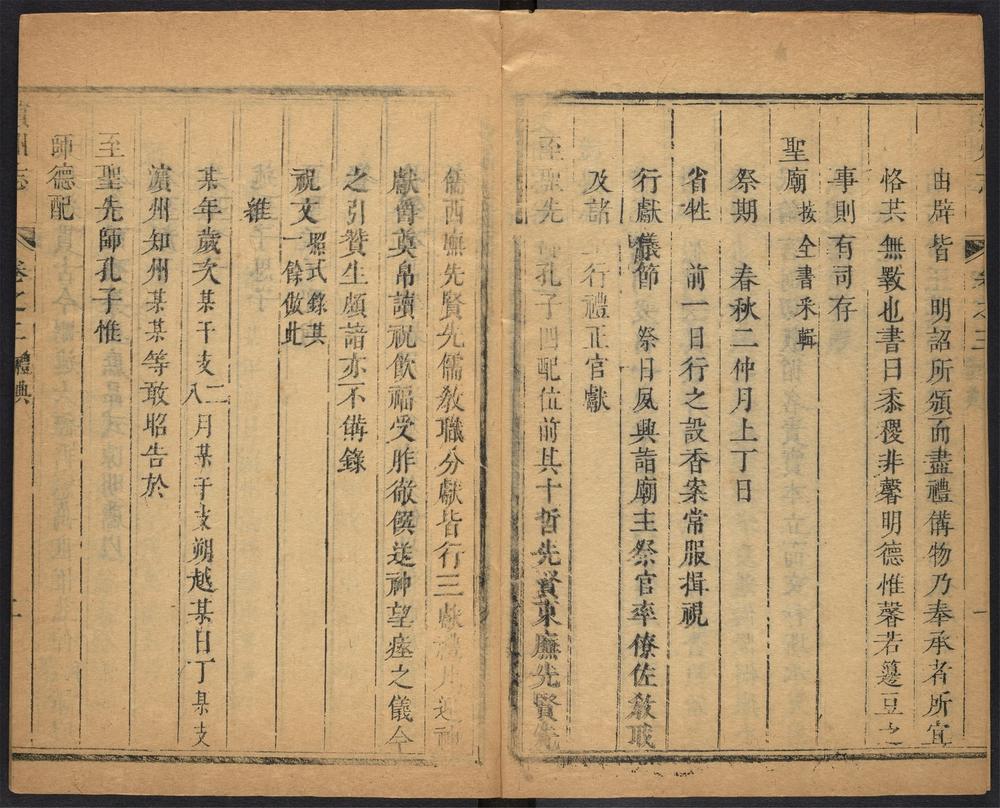 由辟皆 明詔所頒而盡禮備物乃奉承者所宜
恪共無斁也書曰黍稷非馨明德惟馨若籩豆之
事則有司存
聖廟 按全書釆輯
祭期 春秋二仲月上丁日
省牲 前一日行之設香案常服揖視
行獻儀節 祭日夙興詣廟主祭官率僚佐教職
及諸 行禮正官獻
至聖先 孔子四配位前其十哲先賢東廡先賢先
儒西廡先賢先儒教職分獻皆行三獻禮 迎神
獻爵奠帛讀祝飲福受胙徹饌送神望瘞之儀今
之引贊生頗諳亦不備錄
祝文 照式錄其一餘倣此
維
某年歲次某干支二八月某干支朔越某日丁某支
濱州知州某某等敢昭告於
至聖先師孔子惟
師德配
州志 卷之二 禮典 二